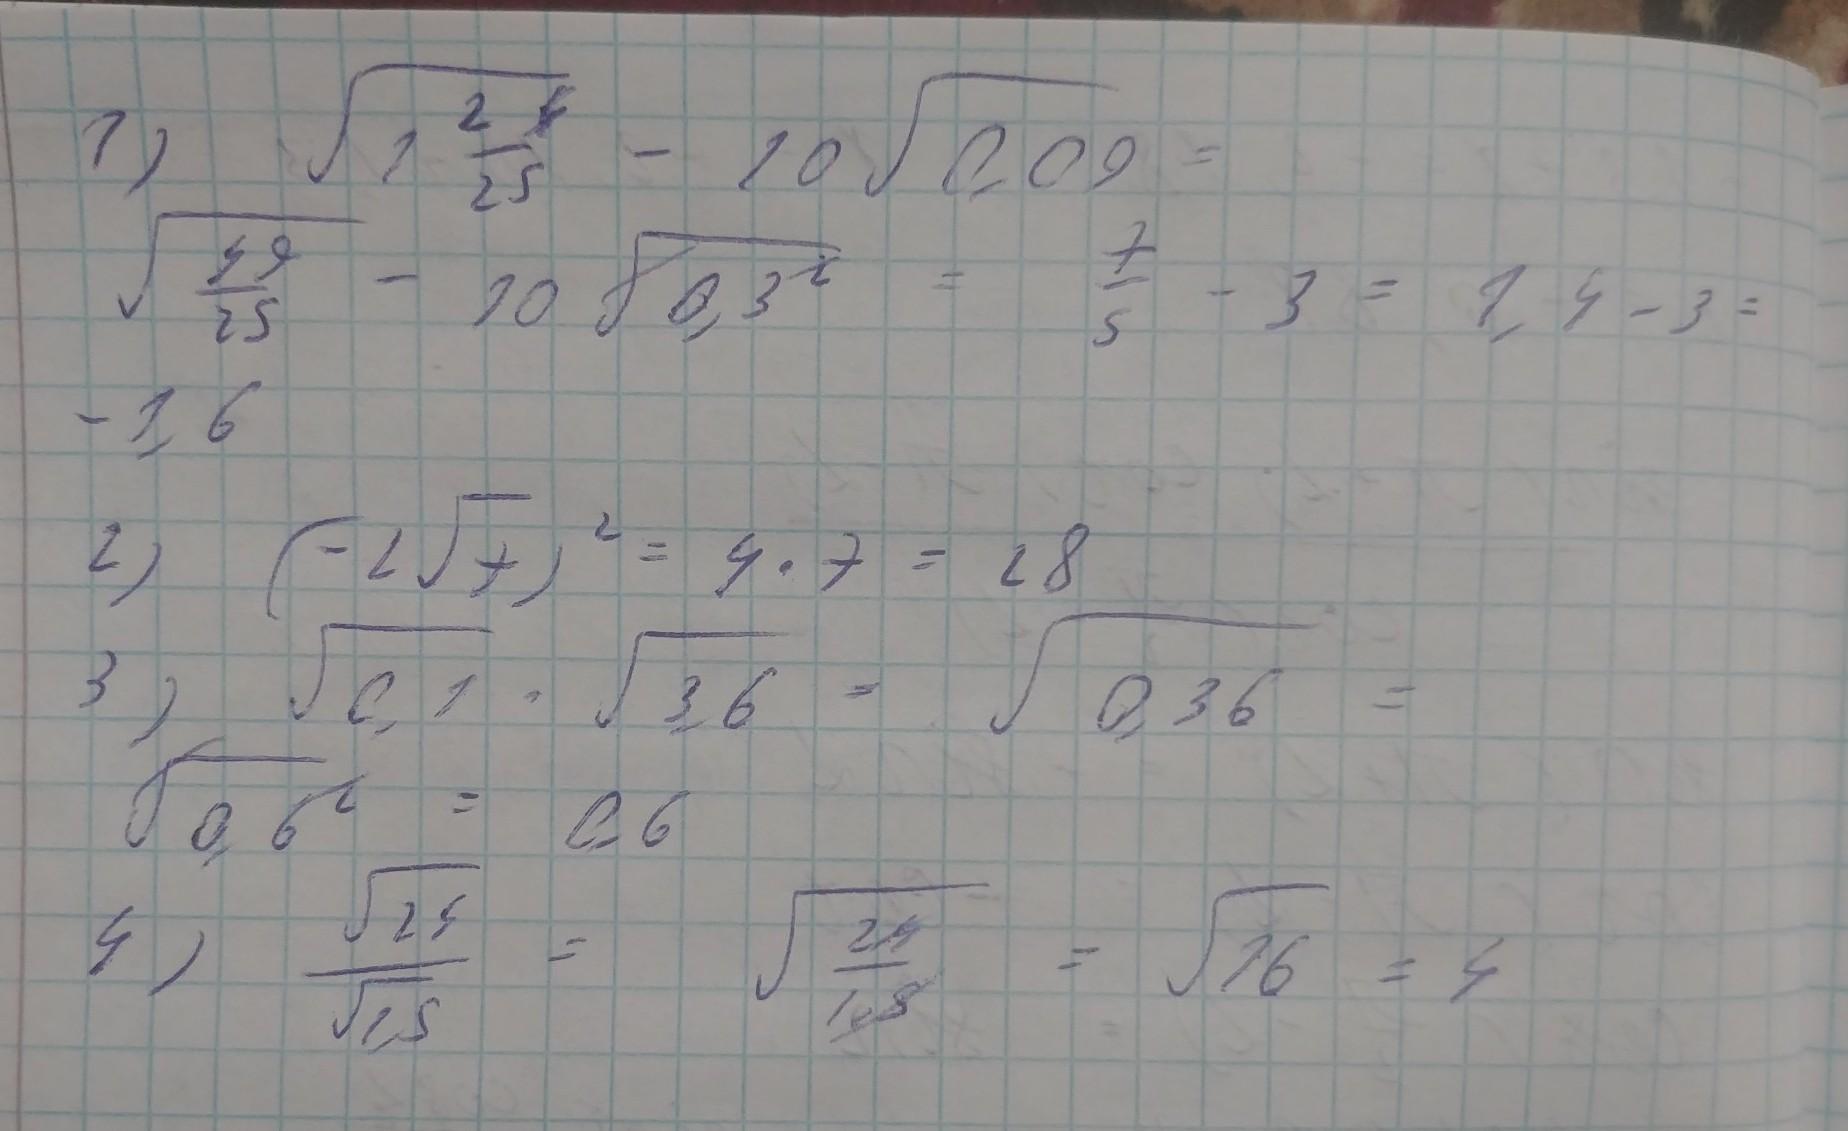 1) √(1 24/25) - 10√0,09 =
√(49/25) - 10√0,3² = 7/5 - 3 = 1,4 - 3 =
-1,6
2) (-2√7)² = 4 · 7 = 28
3) √0,1 · √3,6 = √0,36 =
√0,6² = 0,6
4) √24/√1,5 = √(24/1,5) = √16 = 4